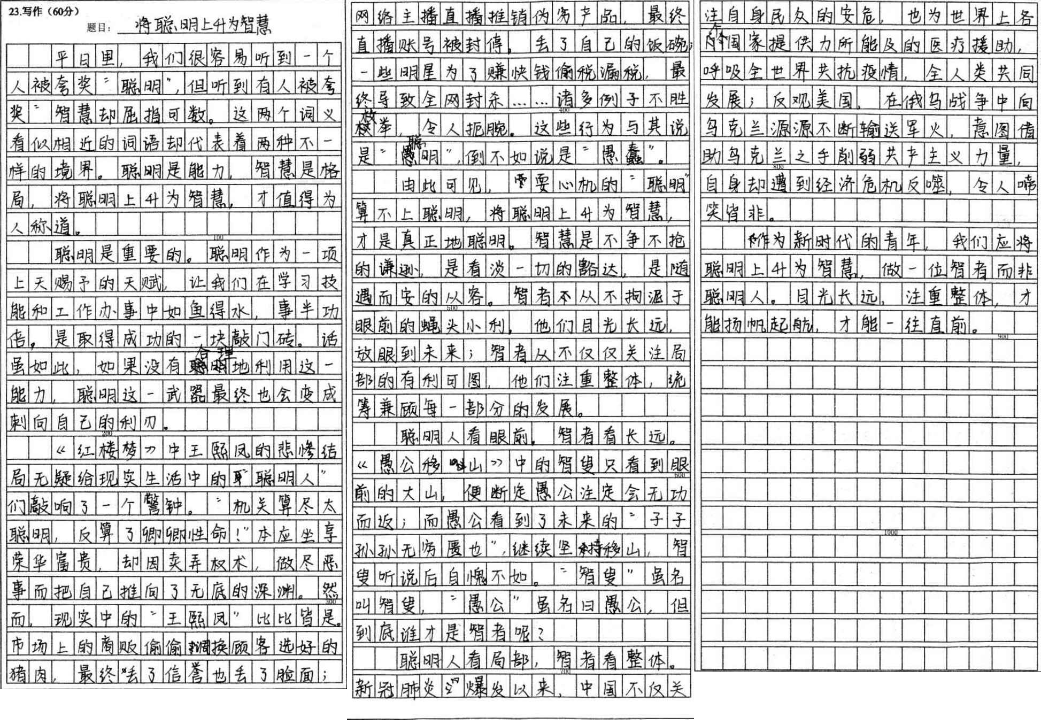 23.写作（60分）
题目：将聪明上升为智慧
平日里，我们很容易听到一个
人被夸奖“聪明”，但听到有人被夸
奖“智慧却屈指可数。这两个词义
看似相近的词语却代表着两种不一
样的境界。聪明是能力，智慧是格
局，将聪明上升为智慧，才值得为
人称道。
100
聪明是重要的。聪明作为一项
上天赐予的天赋，让我们在学习技
能和工作办事中如鱼得水，事半功
倍。是取得成功的一块敲门砖。话
虽如此，如果没有合理地利用这一
能力，聪明这一武器最终也会变成
刺向自己的利刃。
200
《红楼梦》中王熙凤的悲惨结
局无疑给现实生活中的“聪明人”
们敲响了一个警钟。“机关算尽太
聪明，反算了卿卿性命！”本应坐享
荣华富贵，却因卖弄权术，做尽恶
事而把自己推向了无底的深渊。然
300
而，现实中的“王熙凤”比比皆是。
市场上的商贩偷偷调换顾客选好的
猪肉，最终丢了信誉也丢了脸面；
网络主播直播推销伪劣产品，最终
直播账号被封停。丢了自己的饭碗；
一些明星为了赚快钱偷税漏税，最
终导致全网封杀……诸多例子不胜
400
枚举，令人扼腕。这些行为与其说
是“聪明”，倒不如说是“愚蠢”。
由此可见，耍心机的“聪明”
算不上聪明，将聪明上升为智慧，
才是真正地聪明。智慧是不争不抢
的谦逊，是看淡一切的豁达，是随
遇而安的从容。智者从不拘泥于
500
眼前的蝇头小利。他们目光长远，
放眼到未来；智者从不仅仅关注局
部的有利可图，他们注重整体，统
筹兼顾每一部分的发展。
聪明人看眼前。智者看长远。
《愚公移山》中的智叟只看到眼
600
前的大山，便断定愚公注定会无功
而返；而愚公看到了未来的“子子
孙孙无穷匮也”，继续坚持移山，智
叟听说后自愧不如。“智叟”虽名
叫智叟，“愚公”虽名曰愚公，但
到底谁才是智者呢？
聪明人看局部，智者看整体。
700
新冠肺炎爆发以来，中国不仅关
注自身民众的安危，也为世界上各
个国家提供力所能及的医疗援助，
呼吸全世界共抗疫情，全人类共同
发展；反观美国，在俄乌战争中向
乌克兰源源不断输送军火，意图借
助乌克兰之手削弱共产主义力量，
800
自身却遭到经济危机反噬，令人啼
笑皆非。
作为新时代的青年，我们应将
聪明上升为智慧，做一位智者而非
聪明人。目光长远，注重整体，才
能扬帆起航，才能一往直前。
900
1000